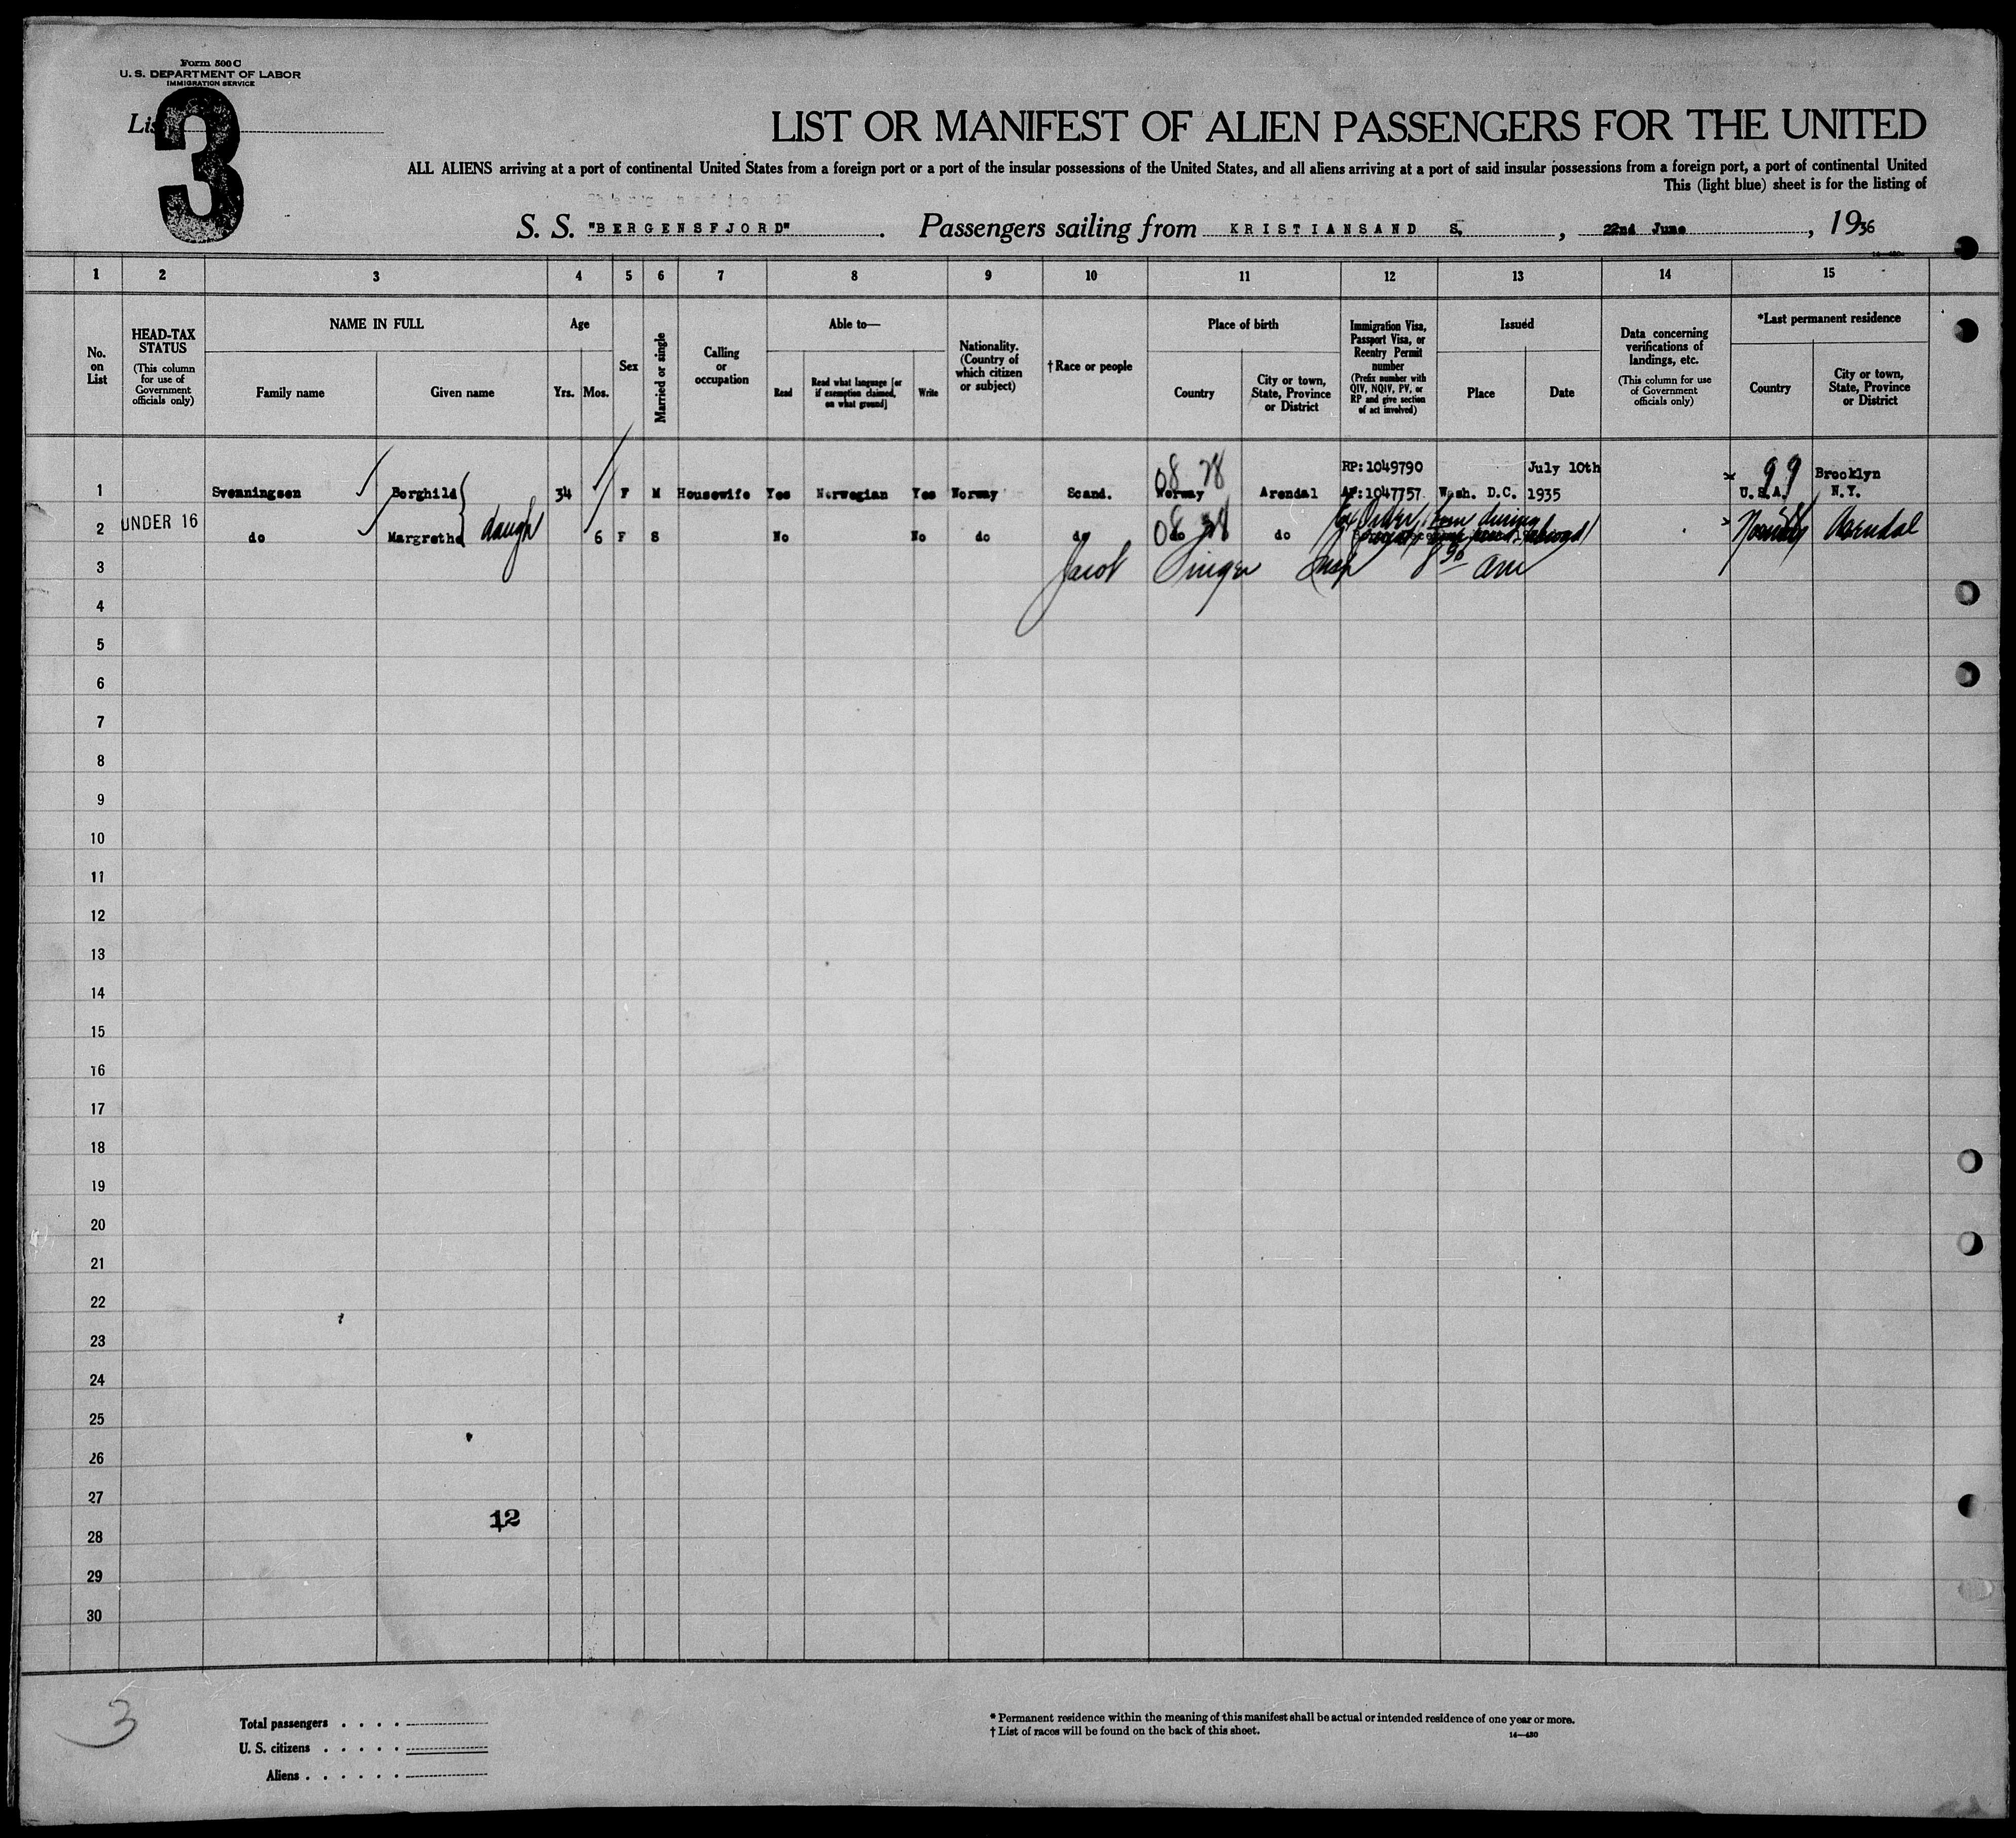 Form 500 C
U. S. DEPARTMENT OF LABOR
IMMIGRATION SERVICE
List
3
LIST OR MANIFEST OF ALIEN PASSENGERS FOR THE UNITED
ALL ALIENS arriving at a port of continental United States from a foreign port or a port of the insular possessions of the United States, and all aliens arriving at a port of said insular possessions from a foreign port, a port of continental United
This (light blue) sheet is for the listing of
S. S. "BERGENSFJORD" . Passengers sailing from KRISTIANSAND S, , 22nd June , 1936
1 2 3 4 5 6 7 8 9 10 11 12 13 14 15
No. on List
HEAD-TAX STATUS
(This column for use of Government officials only)
NAME IN FULL
Family name Given name
Age
Yrs. Mos.
Sex
Married or single
Calling or occupation
Able to—
Read Read what language [or if exemption claimed, on what ground] Write
Nationality. (Country of which citizen or subject)
† Race or people
Place of birth
Country City or town, State, Province or District
Immigration Visa, Passport Visa, or Reentry Permit number
(Prefix number with QIV, NQIV, PV, or RP and give section of act involved)
Issued
Place Date
Data concerning verifications of landings, etc.
(This column for use of Government officials only)
*Last permanent residence
Country City or town, State, Province or District
08 78 RP:1049790 July 10th 99 Brooklyn
1 Svenningsen Borghild 34 F M Housewife Yes Norwegian Yes Norway Scand. Norway Arendal AF:1047757 Wash. D.C. 1935 U.S.A. N.Y.
2 UNDER 16 do Margrethe daugh 6 F S No No do do 08 do do born during abroad Norway Arendal
3 Jacob Singer Insp
4
5
6
7
8
9
10
11
12
13
14
15
16
17
18
19
20
21
22
23
24
25
26
27
12
28
29
30
3
Total passengers . . . .
U. S. citizens . . . . .
Aliens . . . . . .
* Permanent residence within the meaning of this manifest shall be actual or intended residence of one year or more.
† List of races will be found on the back of this sheet.
14—430